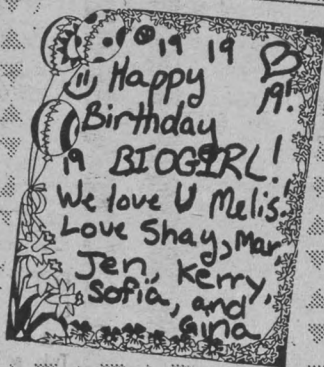 19 19
Happy 19!
Birthday
19 BIOGIRL!
We love U Melis!
Love Shay, Mar,
Jen, Kerry,
Sofia, and
Gina